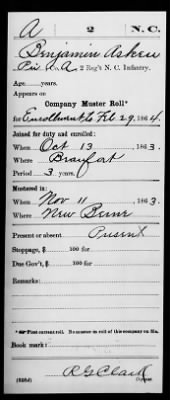 A 2 N.C.
Benjamin Askew
Pvt, Co. A, 2 Reg't N. C. Infantry.
Age years.
Appears on
Company Muster Roll*
for Enrollment to Feb 29, 1864.
Joined for duty and enrolled:
When Oct 13, 1863.
Where Beaufort
Period 3 years.
Mustered in:
When Nov 11, 1863.
Where New Berne
Present or absent Present
Stoppage, $ 100 for
Due Gov't, $ 100 for
Remarks:
*First current roll. No muster-in roll of this company on file.
Book mark:
R G Clark
Copyist.